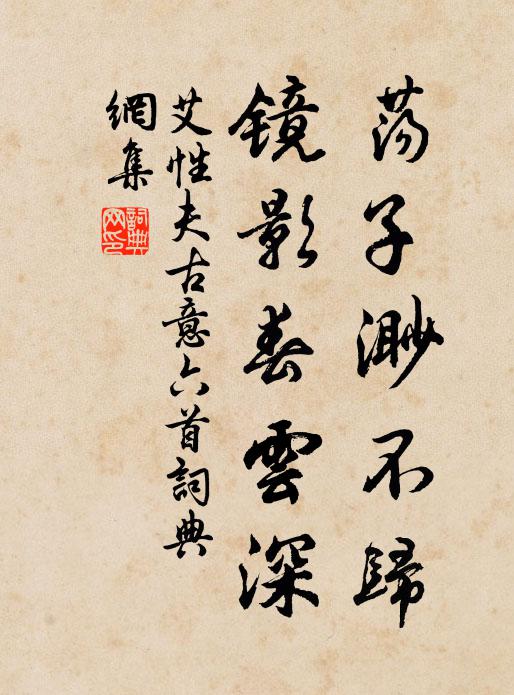 荡子渺不歸
鏡影春雲深
艾性夫古意六首詞典
網集
詞典
网印